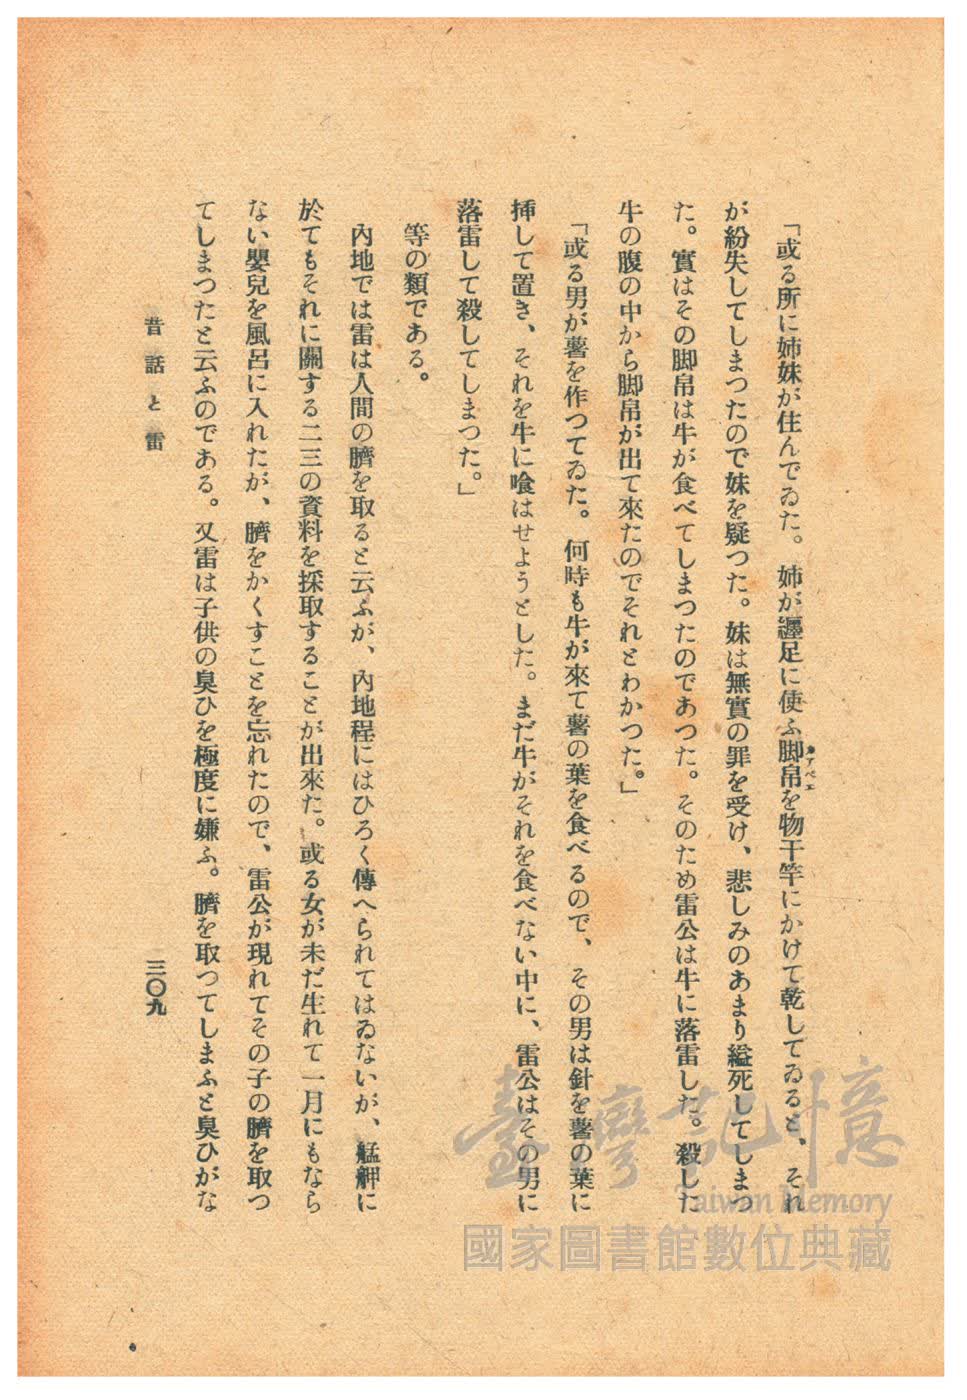 「或る所に姉妹が住んでゐた。姉が纏足に使ふ脚帛を物干竿にかけて乾してゐると、それ
が紛失してしまつたので妹を疑つた。妹は無實の罪を受け、悲しみのあまり縊死してしまつ
た。實はその脚帛は牛が食べてしまつたのであつた。そのため雷公は牛に落雷した。殺した
牛の腹の中から脚帛が出て來たのでそれとわかつた。」
「或る男が薯を作つてゐた。何時も牛が來て薯の葉を食べるので、その男は針を薯の葉に
挿して置き、それを牛に喰はせようとした。まだ牛がそれを食べない中に、雷公はその男に
落雷して殺してしまつた。」
等の類である。
內地では雷は人間の臍を取ると云ふが、內地程にはひろく傳へられてはゐないが、艋舺に
於てもそれに關する二三の資料を採取することが出來た。或る女が未だ生れて一月にもなら
ない嬰兒を風呂に入れたが、臍をかくすことを忘れたので、雷公が現れてその子の臍を取つ
てしまつたと云ふのである。又雷は子供の臭ひを極度に嫌ふ。臍を取つてしまふと臭ひがな
昔話と雷
三〇九
臺灣記憶
Taiwan Memory
國家圖書館數位典藏